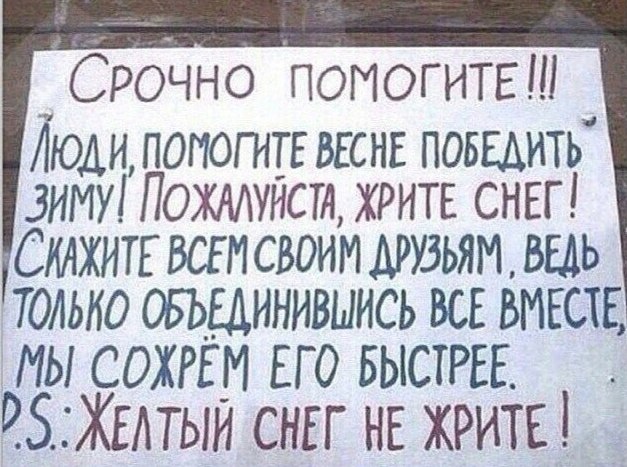 Срочно помогите!!!
Люди, помогите весне победить
зиму! Пожалуйста, жрите снег!
Скажите всем своим друзьям, ведь
только объединившись все вместе,
мы сожрём его быстрее.
P.S.: Желтый снег не жрите!